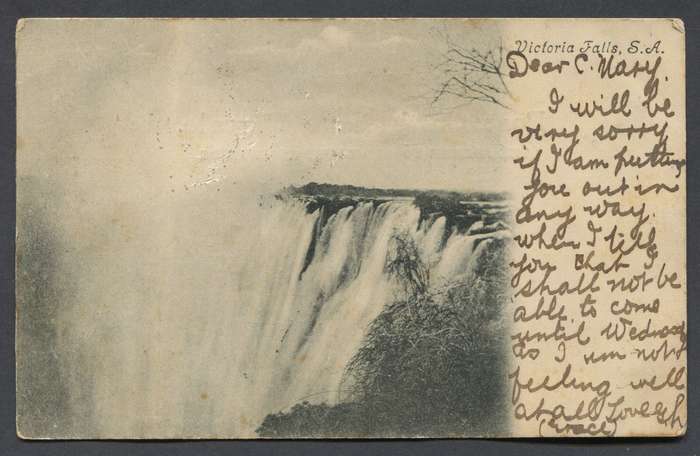 Victoria Falls, S.A.
Dear C. Mary.
I will be
very sorry
if I am putting
you out in
any way.
when I tell
you that I
shall not be
able to come
until Wednesd
as I am not
feeling well
at all Love
(Grace)